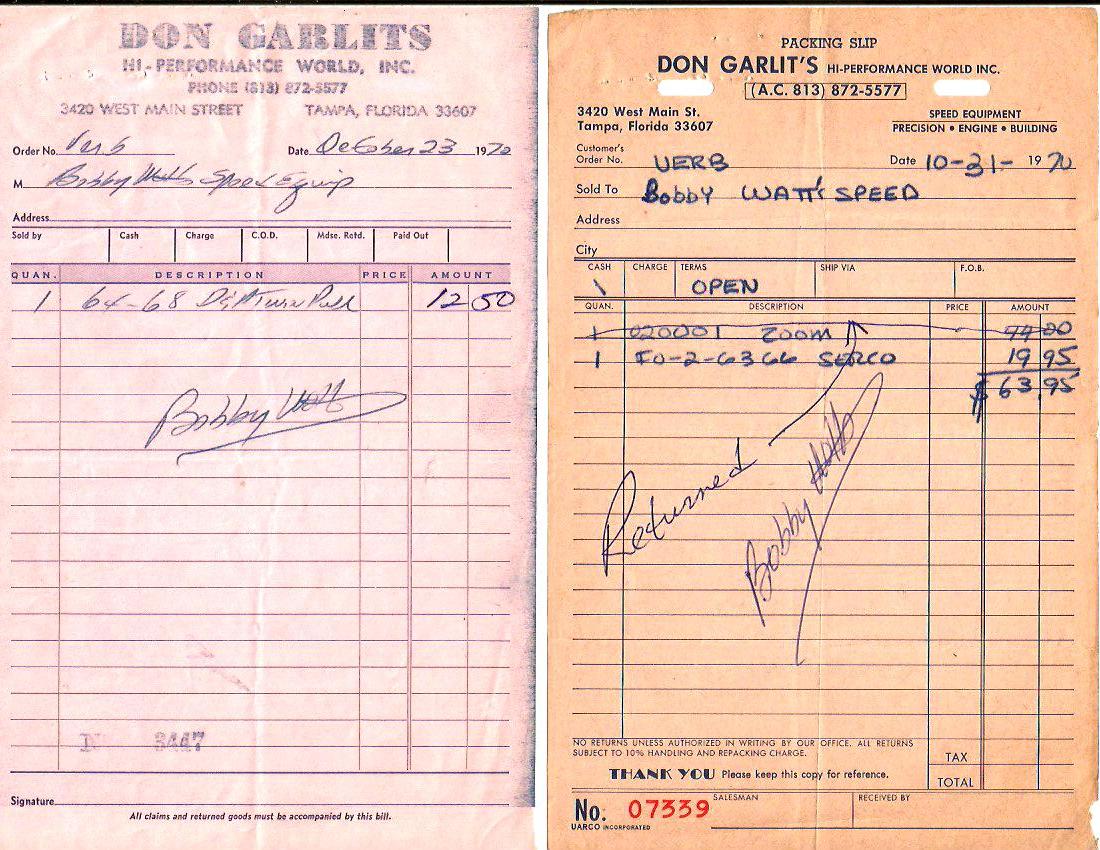 DON GARLITS
HI-PERFORMANCE WORLD, INC.
PHONE (813) 872-5577
3420 WEST MAIN STREET TAMPA, FLORIDA 33607
Order No. Verb Date October 23 1970
M Bobby Watts Speed Equip
Address
Sold by Cash Charge C.O.D. Mdse. Retd. Paid Out
QUAN. DESCRIPTION PRICE AMOUNT
1 64-68 12 50
Bobby Watts
3447
Signature
All claims and returned goods must be accompanied by this bill.
PACKING SLIP
DON GARLIT'S HI-PERFORMANCE WORLD INC.
(A.C. 813) 872-5577
3420 West Main St.
Tampa, Florida 33607
SPEED EQUIPMENT
PRECISION • ENGINE • BUILDING
Customer's
Order No. VERB Date 10-31- 1970
Sold To Bobby WATT'S SPEED
Address
City
CASH CHARGE TERMS SHIP VIA F.O.B.
\ OPEN
QUAN. DESCRIPTION PRICE AMOUNT
1 020001 ZOOM 44 00
1 FO-2-6366 SERCO 19 95
$ 63.95
Returned
Bobby Watts
NO RETURNS UNLESS AUTHORIZED IN WRITING BY OUR OFFICE. ALL RETURNS
SUBJECT TO 10% HANDLING AND REPACKING CHARGE.
TAX
THANK YOU Please keep this copy for reference.
TOTAL
No. 07339 SALESMAN RECEIVED BY
UARCO INCORPORATED